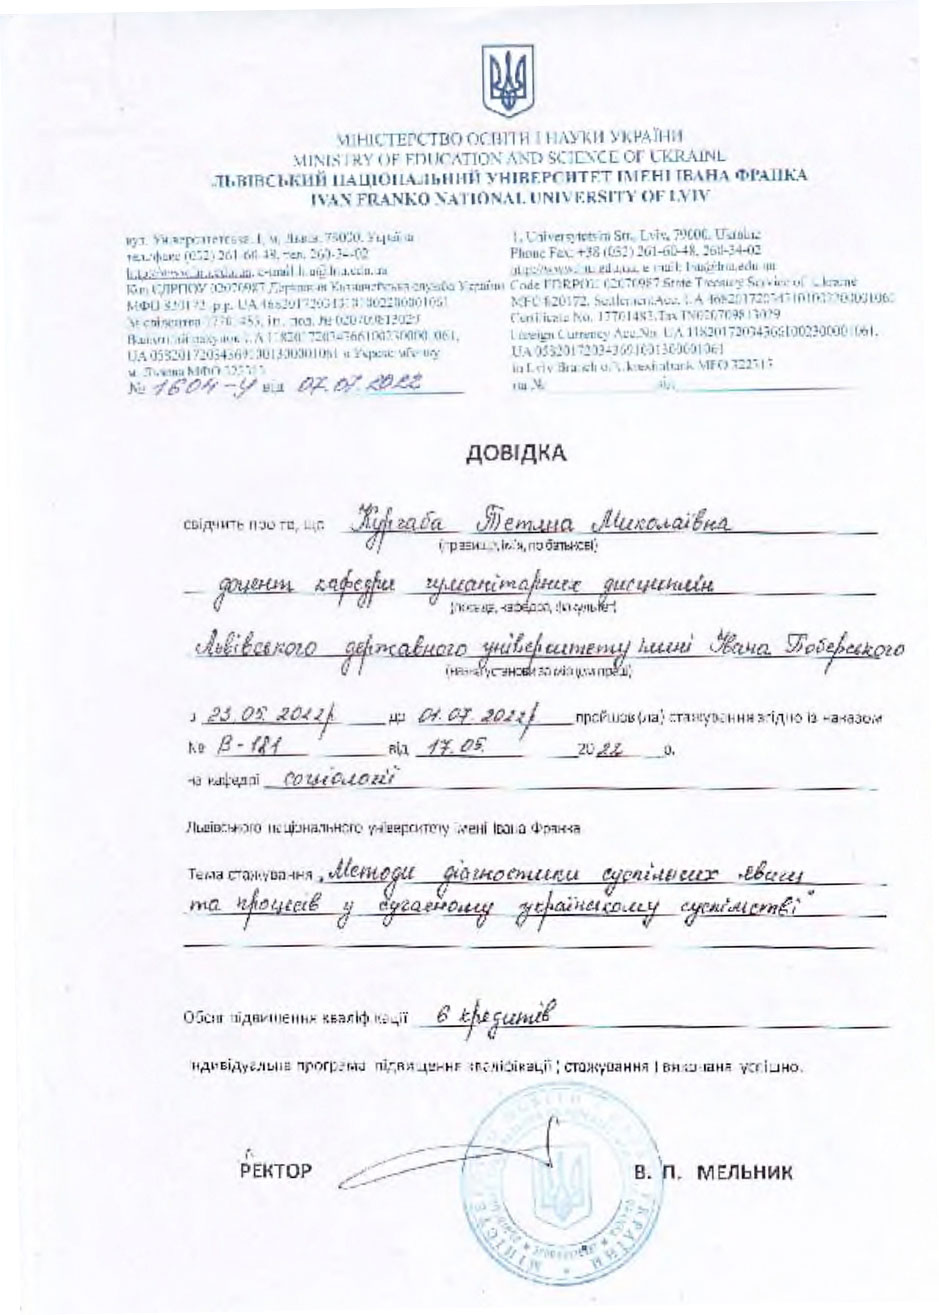 МІНІСТЕРСТВО ОСВІТИ І НАУКИ УКРАЇНИ
MINISTRY OF EDUCATION AND SCIENCE OF UKRAINE
ЛЬВІВСЬКИЙ НАЦІОНАЛЬНИЙ УНІВЕРСИТЕТ ІМЕНІ ІВАНА ФРАНКА
IVAN FRANKO NATIONAL UNIVERSITY OF LVIV
вул. Університетська, 1, м. Львів, 79000, Україна
тел./факс (032) 261-60-48, тел. 260-34-02
e-mail:
Код ЄДРПОУ 02070987 Державна Казначейська служба України
МФО 820172
UA 058201720343691001300001061 в Укрексімбанку
м. Львова МФО 322313
№ 1604-У від 07.07.2022
1, Universytetska Str., Lviv, 79000, Ukraine
Phone Fax: +38 (032) 261-60-48, 260-34-02
Code EDRPOU 02070987 State Treasury Service of Ukraine
MFC 820172, Settlement Acc.
Certificate No. 17701483, Tax IN020709813029
Foreign Currency Acc.No. UA 118201720343661002300001061,
UA 058201720343691001300001061
in Lviv Branch of Ukreximbank MFO 322313
на № від
ДОВІДКА
свідчить про те, що Кургаба Тетяна Миколаївна
(прізвище, ім'я, по батькові)
доцент кафедри гуманітарних дисциплін
(посада, кафедра, факультет)
Львівського державного університету імені Івана Боберського
(назва установи за місцем праці)
з 23.05.2022р до 01.07.2022р пройшов(ла) стажування згідно із наказом
№ В-181 від 17.05. 2022 р.
на кафедрі соціології
Львівського національного університету імені Івана Франка
Тема стажування „Методи діагностики суспільних явищ
та процесів у сучасному українському суспільстві"
Обсяг підвищення кваліфікації 6 кредитів
Індивідуальна програма підвищення кваліфікації ( стажування ) виконана успішно.
РЕКТОР В. П. МЕЛЬНИК